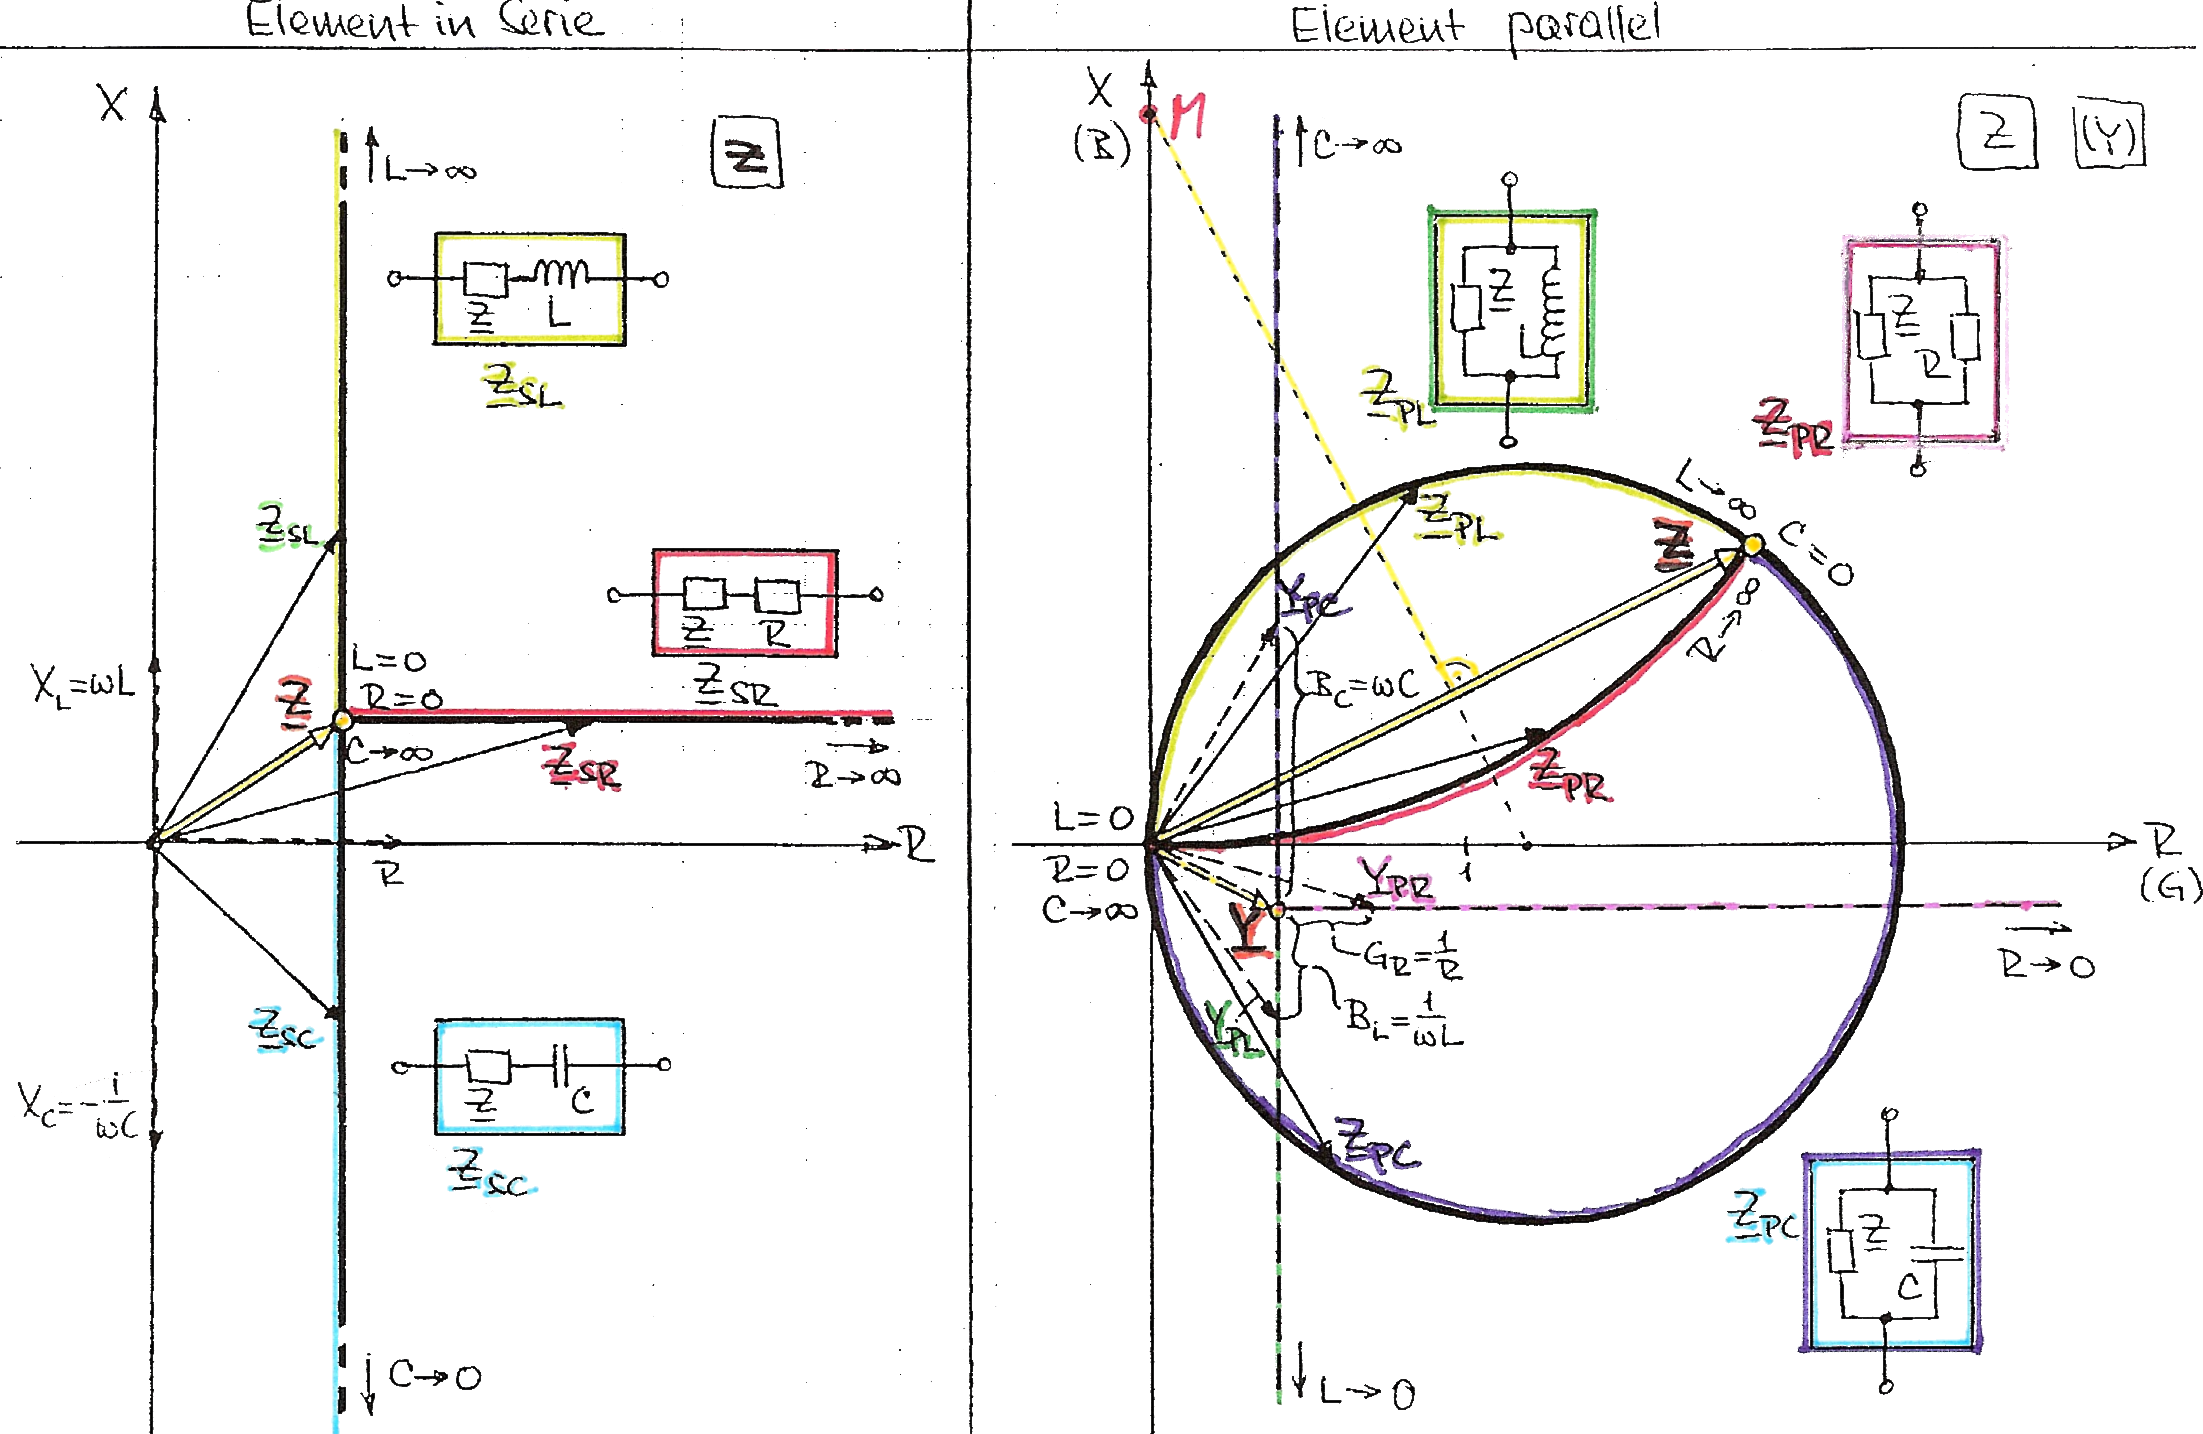 Element in Serie
X
Z
L→∞
Z
L
Z_SL
Z_SL
X_L=ωL
L=0
R=0
Z
C→∞
Z
R
Z_SR
Z_SR
R→∞
R
R
X_C=-1/ωC
Z_SC
Z
C
Z_SC
C→0
Element parallel
X
(B)
M
C→∞
Z
(Y)
Z
L
Z_PL
Z
R
Z_PR
L→∞
Z_PL
Z
C=0
R→∞
Y_PC
B_C=ωC
Z_PR
L=0
R=0
C→∞
1
R
(G)
Y_PR
Y
G_R=1/R
R→0
B_L=1/ωL
Y_PL
Z_PC
Z_PC
Z
C
L→0